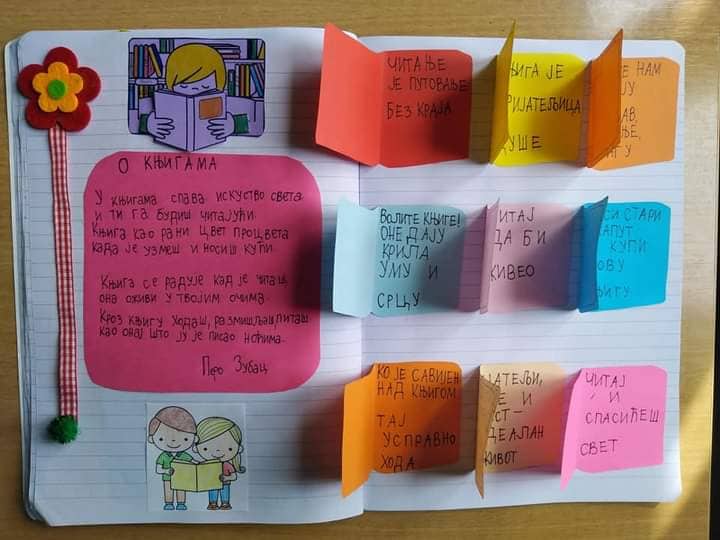 О КЊИГАМА
У КЊИГАМА СПАВА ИСКУСТВО СВЕТА
И ТИ ГА БУДИШ ЧИТАЈУЋИ.
КЊИГА КАО РАНИ ЦВЕТ ПРОЦВЕТА
КАДА ЈЕ УЗМЕШ И НОСИШ КУЋИ.
КЊИГА СЕ РАДУЈЕ КАД ЈЕ ЧИТАШ,
ОНА ОЖИВИ У ТВОЈИМ ОЧИМА.
КРОЗ КЊИГУ ХОДАШ, РАЗМИШЉАШ, ПИТАШ
КАО ОНАЈ ШТО ЈУ ЈЕ ПИСАО НОЋИМА.
Перо Зубац
ЧИТАЊЕ
ЈЕ ПУТОВАЊЕ
БЕЗ КРАЈА
ЈЕ
ДУШЕ
НАМ
ВОЛИТЕ КЊИГЕ!
ОНЕ ДАЈУ
КРИЛА
УМУ И
СРЦУ
ЧИТАЈ
ДА БИ
ЖИВЕО
СТАРИ
КАПУТ
КУПИ
НОВУ
КЊИГУ
КО ЈЕ САВИЈЕН
НАД КЊИГОМ
ТАЈ
УСПРАВНО
ХОДА
И
ЖИВОТ
ЧИТАЈ
И
СПАСИЋЕШ
СВЕТ